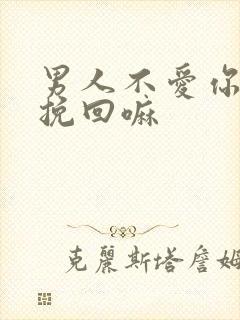 男人不愛你
挽回嘛
克麗斯塔詹姆